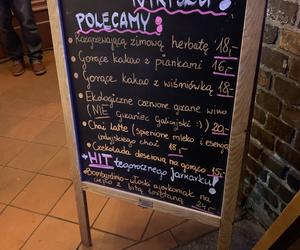 POLECAMY:
• Rozgrzewającą zimową herbatę 18,-
• Gorące kakao z piankami 16,-
• Gorące kakao z wiśniówką 18,-
• Ekologiczne czerwone grzane wino
(NIE grzaniec Galicyjski :)) 20,-
• Chai latte (spienione mleko i esencja
indyjskiego chai 18,-
• Czekolada deserowa na gorąco 15,-
HIT tegorocznego jarmarku!
• Bombardino - włoski ajerkoniak na
ciepło z bitą śmietaną 24,-